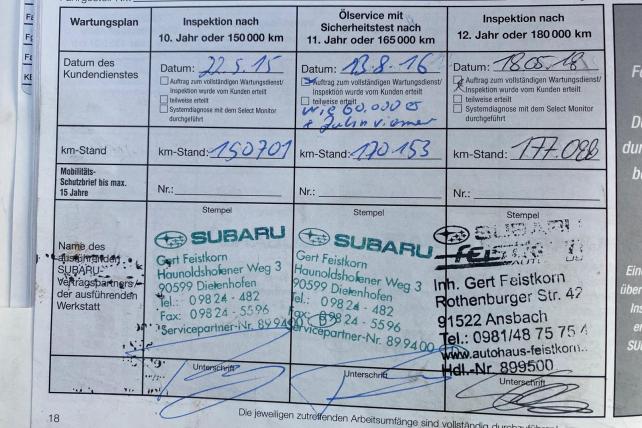 Wartungsplan
Inspektion nach
10. Jahr oder 150 000 km
Ölservice mit
Sicherheitstest nach
11. Jahr oder 165 000 km
Inspektion nach
12. Jahr oder 180 000 km
Datum des
Kundendienstes
Datum: 22.5.15
Auftrag zum vollständigen Wartungsdienst/
Inspektion wurde vom Kunden erteilt
teilweise erteilt
Systemdiagnose mit dem Select Monitor
durchgeführt
Datum: 13.8.16
Auftrag zum vollständigen Wartungsdienst/
Inspektion wurde vom Kunden erteilt
teilweise erteilt
wie 60.000
Datum: 18.05.18
Auftrag zum vollständigen Wartungsdienst/
Inspektion wurde vom Kunden erteilt
teilweise erteilt
Systemdiagnose mit dem Select Monitor
durchgeführt
km-Stand
km-Stand: 150701
km-Stand: 170 153
km-Stand: 177.088
Mobilitäts-
Schutzbrief bis max.
15 Jahre
Nr.:
Nr.:
Nr.:
Name des
ausführenden
SUBARU-
Vertragspartners/
der ausführenden
Werkstatt
Stempel
SUBARU
Gert Feistkorn
Haunoldshofener Weg 3
90599 Dietenhofen
Tel.: 09824 - 482
Fax: 09824 - 5596
Servicepartner-Nr. 899400
Unterschrift
Stempel
SUBARU
Gert Feistkorn
Haunoldshofener Weg 3
90599 Dietenhofen
Tel.: 09824 - 482
Fax: 09824 - 5596
Servicepartner-Nr. 899400
Unterschrift
Stempel
SUBARU
Inh. Gert Feistkorn
Rothenburger Str. 42
91522 Ansbach
Tel.: 0981/48 75 75 4
www.autohaus-feistkorn..
Hdl.-Nr. 899500
Unterschrift
18
Die jeweiligen zutreffenden Arbeitsumfänge sind vollständig